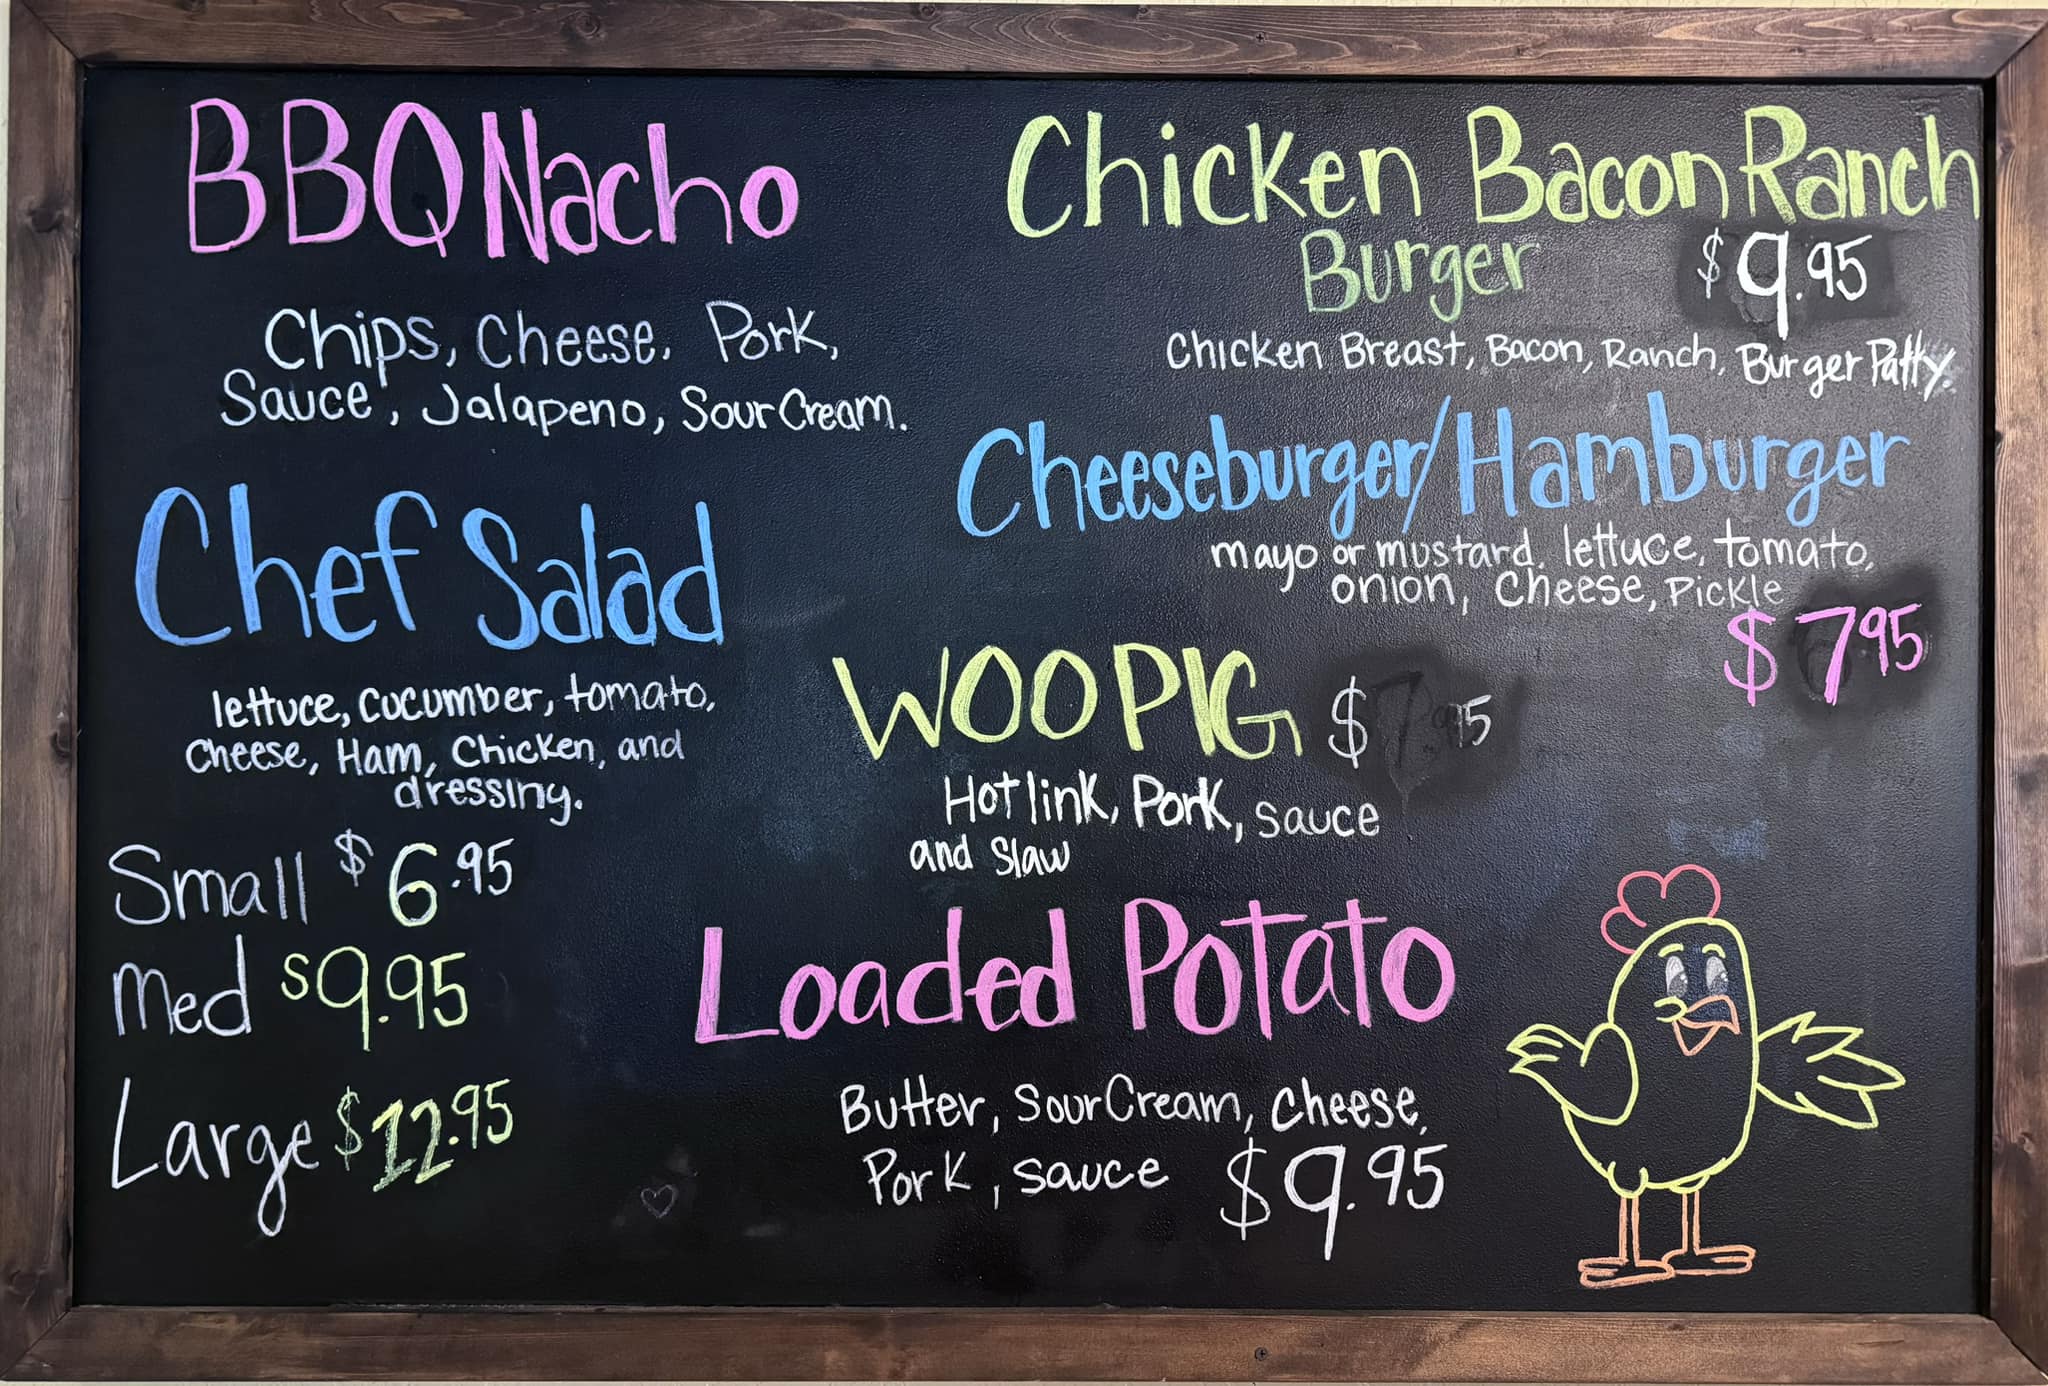 BBQ Nacho
Chips, Cheese, Pork,
Sauce, Jalapeno, Sour Cream.
Chef Salad
lettuce, cucumber, tomato,
Cheese, Ham, Chicken, and
dressing.
Small $6.95
Med $9.95
Large $12.95
Chicken Bacon Ranch
Burger $9.95
Chicken Breast, Bacon, Ranch, Burger Patty.
Cheeseburger/Hamburger
mayo or mustard, lettuce, tomato,
onion, Cheese, Pickle
$7.95
WOO PIG $
Hot link, Pork, sauce
and slaw
Loaded Potato
Butter, Sour Cream, Cheese,
Pork, sauce $9.95